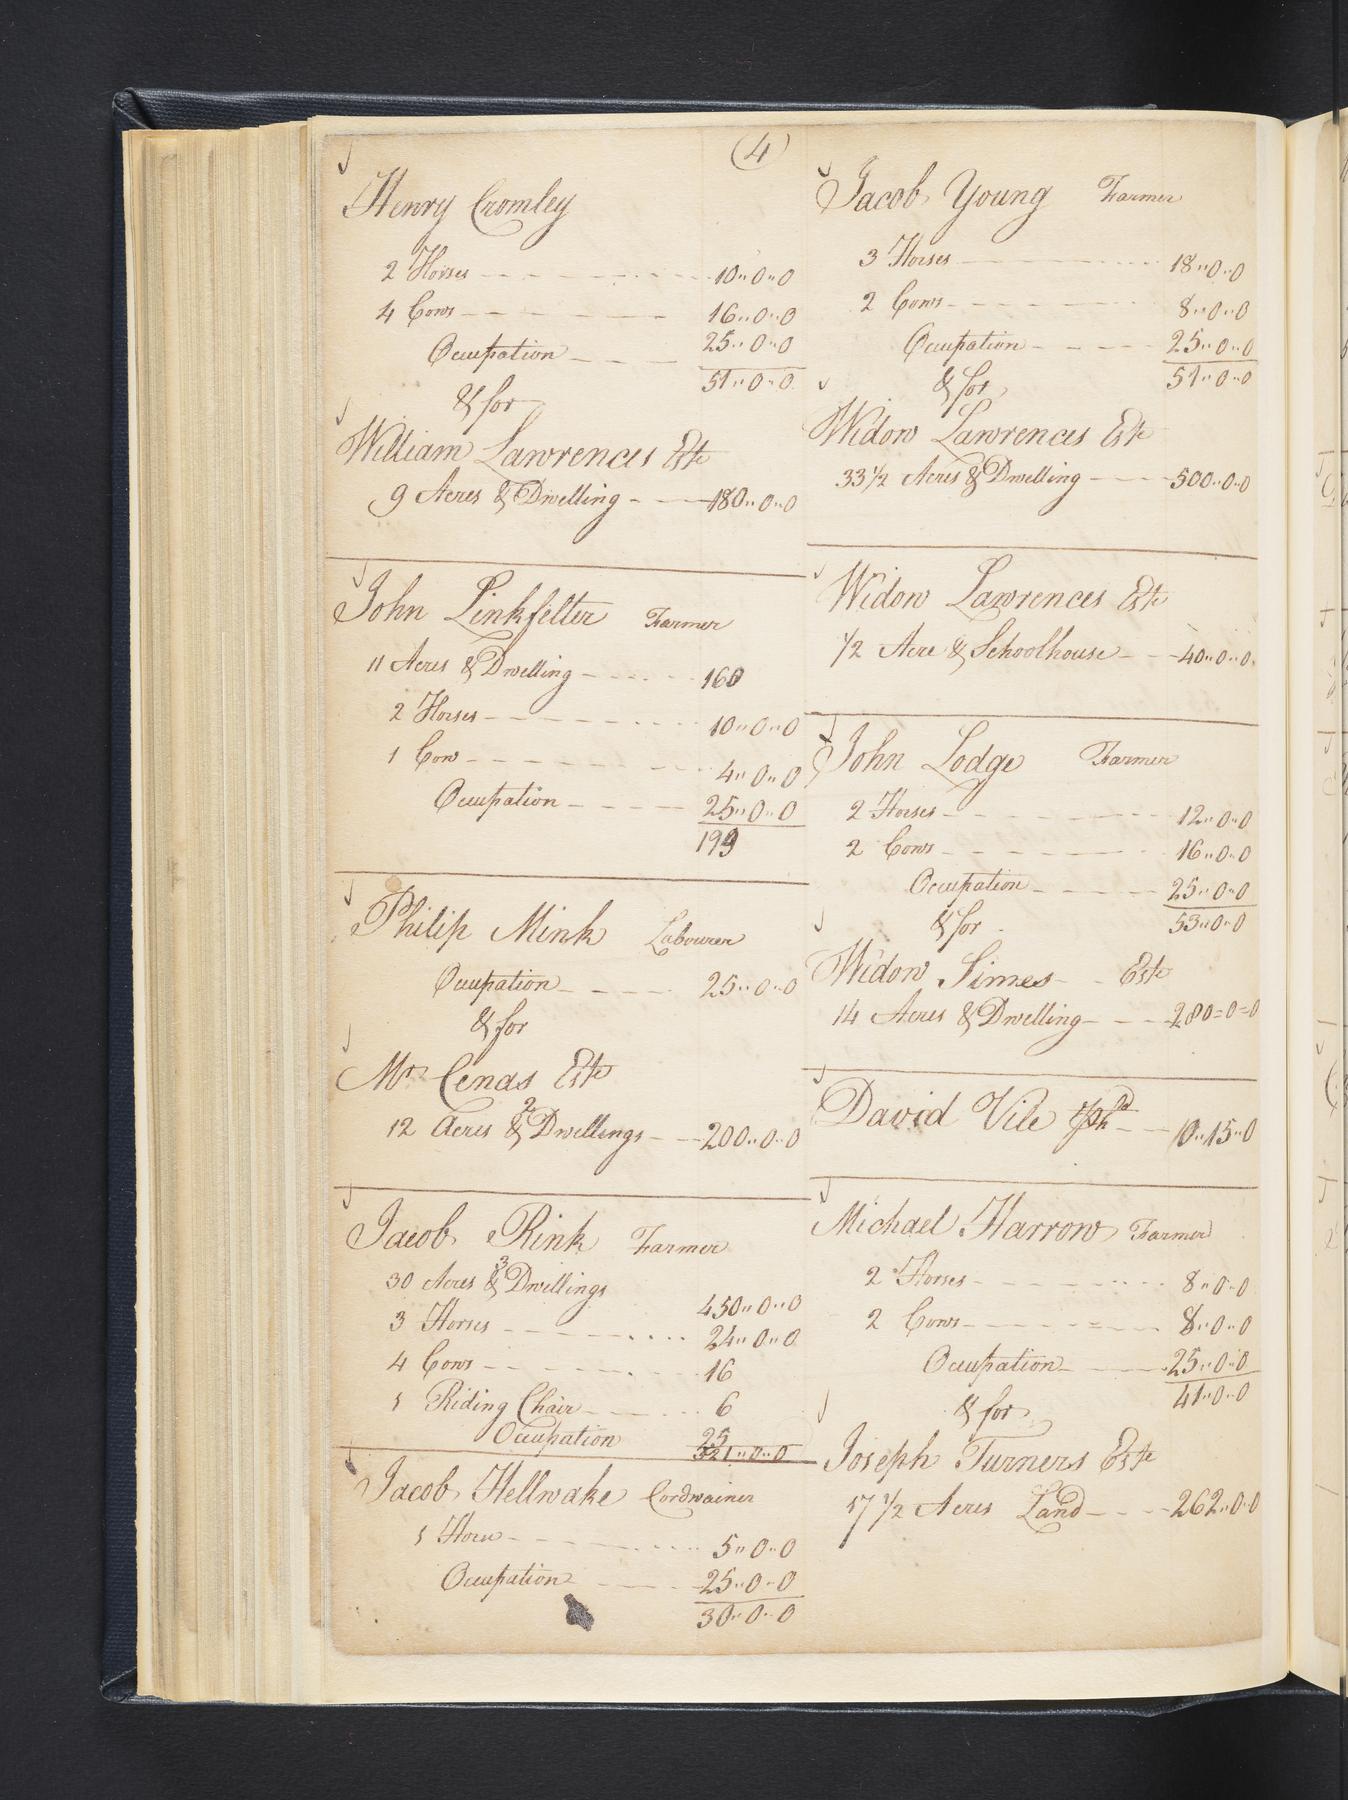 (4)
Henry Cromley
2 Horses 10..0..0
4 Cows 16..0..0
Occupation 25..0..0
51..0..0
& for
William Lawrences Este
9 Acres & Dwelling 180..0..0
John Linkfelter Farmer
11 Acres & Dwelling 160
2 Horses 10..0..0
1 Cow 4..0..0
Occupation 25..0..0
199
Philip Mink Labourer
Occupation 25..0..0
& for
Mr Cenas Este
12 Acres & 2 Dwellings 200..0..0
Jacob Rink Farmer
30 Acres & 3 Dwellings
450..0..0
3 Horses 24..0..0
4 Cows 16
1 Riding Chair 6
Occupation 25
521..0..0
Jacob Hellwake Cordwainer
1 Horse 5..0..0
Occupation 25..0..0
30..0..0
Jacob Young Farmer
3 Horses 18..0..0
2 Cows 8..0..0
Occupation 25..0..0
51..0..0
& for
Widow Lawrences Este
33 1/2 Acres & Dwelling 500..0..0
Widow Lawrences Este
1/2 Acre & Schoolhouse 40..0..0
John Lodge Farmer
2 Horses 12..0..0
2 Cows 16..0..0
Occupation 25..0..0
53..0..0
& for
Widow Simes Este
14 Acres & Dwelling 280=0=0
David Vile 10..15..0
Michael Harrow Farmer
2 Horses 8..0..0
2 Cows 8..0..0
Occupation 25..0..0
41..0..0
& for
Joseph Turners Este
17 1/2 Acres Land 262..0..0